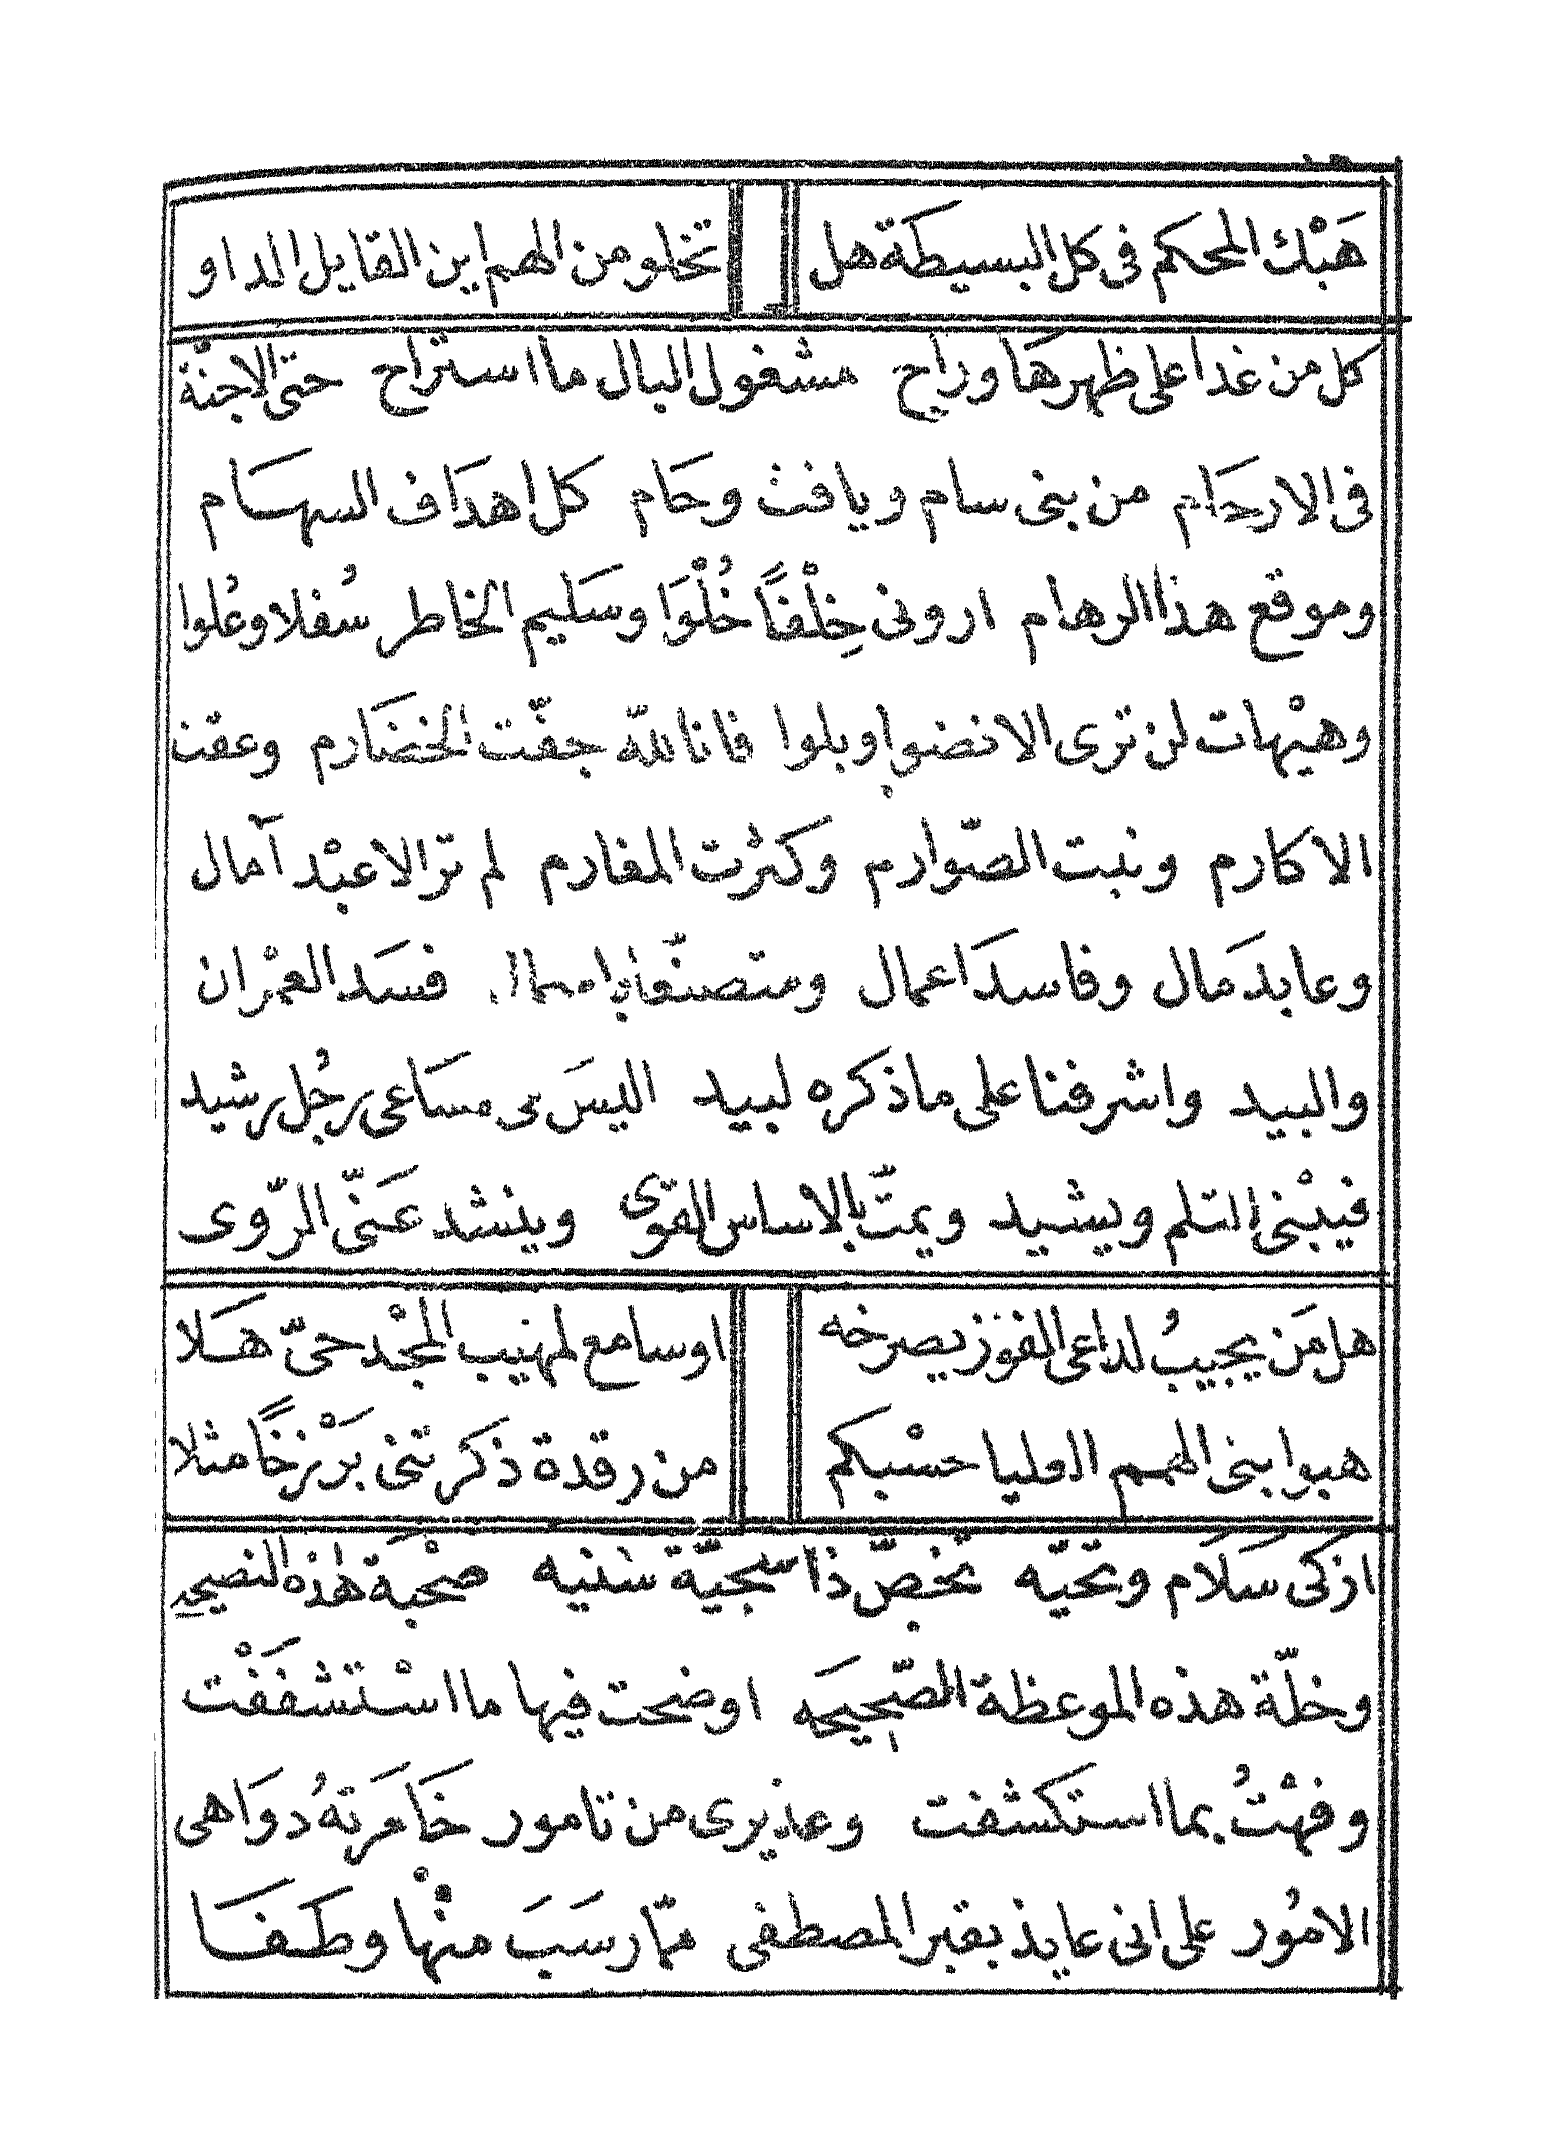 هَبْك المحكم فى كل البسيطة هل تخلو من الهم اين القايل الداو
كل من غدا على ظهرهَا وراح مشغول البال ما استراح حتى الاجنّة
فى الارحَام من بنى سام ويافث وحَام كل اهدَاف السهَام
وموقع هذا الرهام ارونى خِلْفًا خُلْوَا وسَليم الخاطر سُفلا وعُلوا
وهيْهات لن ترى الا نضوا وبلوا فانا للّه جفّت الخضَارم وعقت
الاكارم ونبت الصّوارم وكثرت المغارم لم تر الا عبْد آمال
وعابد مَال وفاسدَ اعمال ومتصنّعا فسَد العمْران
والبيد واشرفنا على ما ذكره لبيد اليسَ فى مسَاعى رجُل رشيد
فيبْنى الثلم ويشيد ويمتّ بالاساس القوى وينشد عَنّى الرّوى
هل مَن يجيبُ لداعى الفوز يصرخه او سامع لمهيب المجْد حىّ هَلا
هبوا بنى الهمم العليا حسْبكم من رقدة ذكرتنى بَرْزخًا مثلا
ازكى سَلَام وتحيّه تخصّ ذا سجيّة سنيه صحْبة هٰذه النصيحه
وخلّة هذه الموعظة الصّحيحه اوضحت فيها ما اسْتشففْت
وفهْتُ بما استكشفت وعذيرى من تامور خَامَرتهُ دوَاهى
الامُور على انى عايذ بقبر المصطفى ممّا رسَبَ منْها وطَفَا